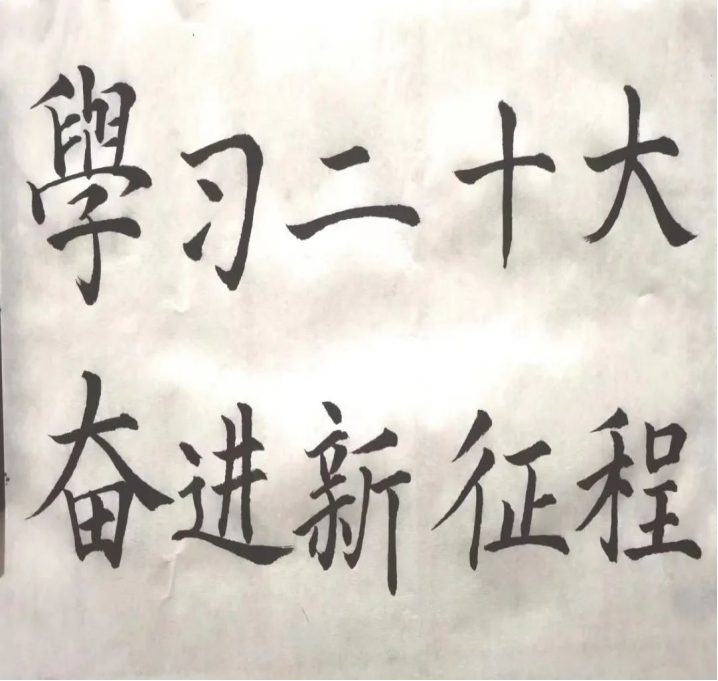 學习二十大
奋进新征程